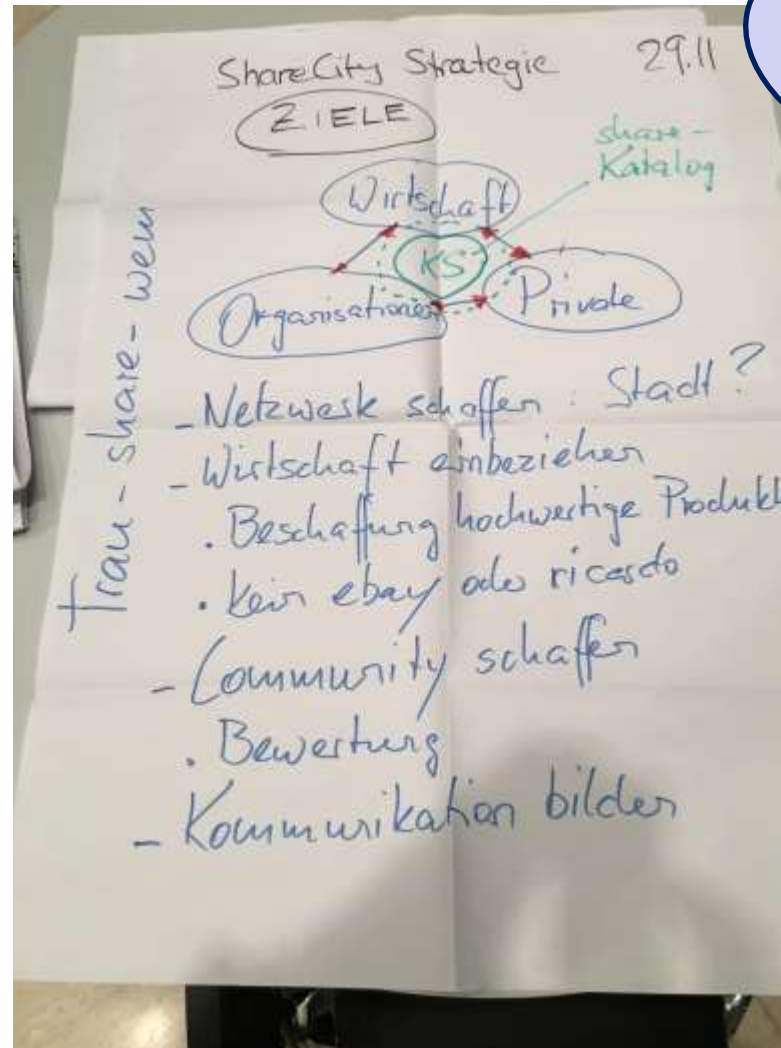 ShareCity Strategie 29.11
ZIELE
share-
Katalog
Wirtschaft
KS
Organisationen
Private
trau-share-wem
- Netzwerk schaffen : Stadt?
- Wirtschaft einbeziehen
. Beschaffung hochwertige Produkt
. Kein ebay oder ricardo
- Community schaffen
. Bewertung
- Kommunikation bilden